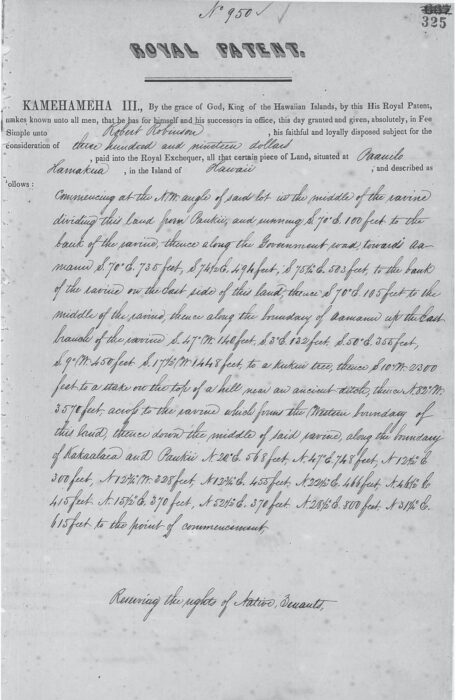 No 950
325
ROYAL PATENT.
KAMEHAMEHA III., By the grace of God, King of the Hawaiian Islands, by this His Royal Patent,
makes known unto all men, that he has for himself and his successors in office, this day granted and given, absolutely, in Fee
Simple unto Robert Robinson , his faithful and loyally disposed subject for the
consideration of three hundred and nineteen dollars
, paid into the Royal Exchequer, all that certain piece of Land, situated at Paauilo
Hamakua , in the Island of Hawaii , and described as
follows :
Commencing at the N.W. angle of said lot in the middle of the ravine
dividing this land from Paukii, and running S. 70° E. 100 feet to the
bank of the ravine, thence along the Government road, towards Aa-
manu S. 70° E. 735 feet, S. 74½ E. 494 feet, S. 75¼ E. 503 feet, to the bank
of the ravine on the East side of this land, thence S. 70° E. 105 feet to the
middle of the ravine, thence along the boundary of Aamanu up the East
branch of the ravine S. 47° W. 140 feet, S. 3° E. 132 feet, S. 50° E. 355 feet,
S. 9° W. 450 feet S. 17½° W. 1448 feet, to a kukui tree, thence S. 10° W. 2300
feet to a stake on the top of a hill, near an ancient ditch, thence N. 82° W.
3570 feet, across to the ravine which forms the Western boundary of
this land, thence down the middle of said ravine, along the boundary
of Kakaalaea and Paukii N. 20° E. 568 feet, N. 47° E. 748 feet, N. 12½° E.
300 feet, N. 12¾° W. 328 feet, N. 12¾° E. 455 feet, N. 22½° E. 466 feet, N. 46½° E.
415 feet N. 15½° E. 370 feet, N. 52½° E. 370 feet N. 28½° E. 800 feet N. 31½° E.
615 feet to the point of commencement,
Reserving the rights of Native Tenants,